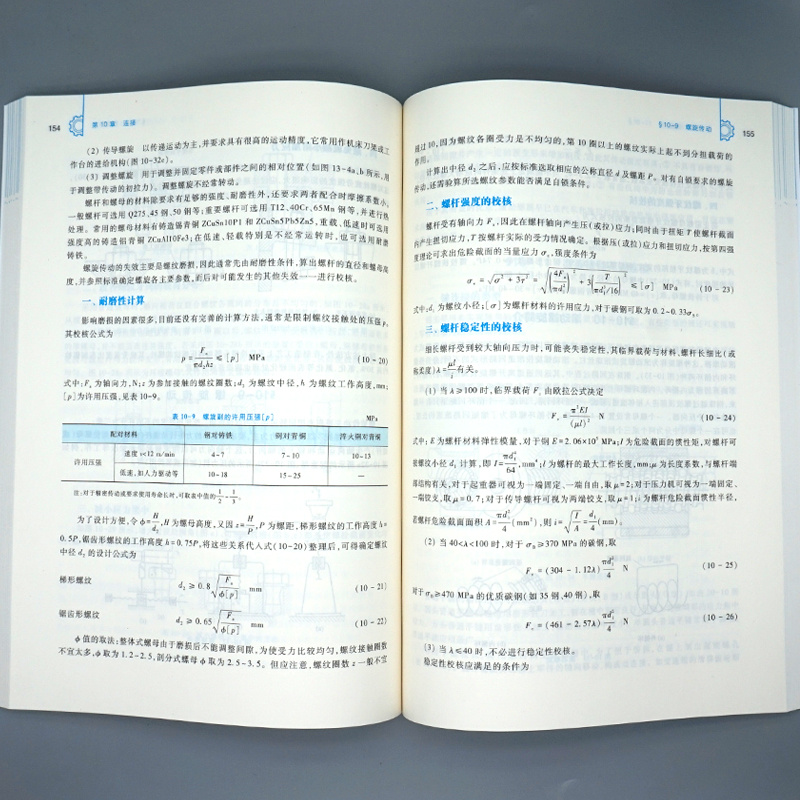 154 第10章 连接
(2) 传导螺旋 以传递运动为主,并要求具有很高的运动精度,它常用作机床刀架或工
作台的进给机构(图 10-32c)。
(3) 调整螺旋 用于调整并固定零件或部件之间的相对位置(如图 13-4a、b 所示,用
于调整带传动的初拉力)。调整螺旋不经常转动。
螺杆和螺母的材料除要求有足够的强度、耐磨性外,还要求两者配合时摩擦系数小。
一般螺杆可选用 Q275、45 钢、50 钢等;重要螺杆可选用 T12、40Cr、65Mn 钢等,并进行热
处理。常用的螺母材料有铸造锡青铜 ZCuSn10P1 和 ZCuSn5Pb5Zn5,重载、低速时可选用
强度高的铸造铝青铜 ZCuAl10Fe3;在低速、轻载特别是不经常运转时,也可选用耐磨
铸铁。
螺旋传动的失效主要是螺纹磨损,因此通常先由耐磨性条件,算出螺杆的直径和螺母高
度,并参照标准确定螺旋各主要参数,而后对可能发生的其他失效一一进行校核。
一、耐磨性计算
影响磨损的因素很多,目前还没有完善的计算方法,通常是限制螺纹接触处的压强p,
其校核公式为
p = F_a/(πd₂hz) ≤ [p] MPa (10-20)
式中:F_a 为轴向力,N;z 为参加接触的螺纹圈数;d₂ 为螺纹中径,h 为螺纹工作高度,mm;
[p]为许用压强,见表 10-9。
表 10-9 螺旋副的许用压强[p] MPa
配对材料 钢对铸铁 钢对青铜 淬火钢对青铜
许用压强 速度 v<12 m/min 4~7 7~10 10~13
低速,如人力驱动等 10~18 15~25 —
注:对于精密传动或要求使用寿命长时,可取表中值的 1/2~1/3。
为了设计方便,令 ϕ=H/d₂,H 为螺母高度,又因 z=H/P,P 为螺距,梯形螺纹的工作高度 h=
0.5P,锯齿形螺纹的工作高度 h=0.75P,将这些关系代入式(10-20)整理后,可得确定螺纹
中径 d₂ 的设计公式为
梯形螺纹
d₂ ≥ 0.8√(F_a/(ϕ[p])) mm (10-21)
锯齿形螺纹
d₂ ≥ 0.65√(F_a/(ϕ[p])) mm (10-22)
ϕ 值的取法:整体式螺母由于磨损后不能调整间隙,为使受力比较均匀,螺纹接触圈数
不宜太多,ϕ 取为 1.2~2.5,剖分式螺母 ϕ 取为 2.5~3.5。但应注意,螺纹圈数 z 一般不宜
§10-9 螺旋传动 155
超过 10,因为螺纹各圈受力是不均匀的,第 10 圈以上的螺纹实际上起不到分担载荷的
作用。
计算出中径 d₂ 之后,应按标准选取相应的公称直径 d 及螺距 P。对有自锁要求的螺旋
传动,还需验算所选螺纹参数能否满足自锁条件。
二、螺杆强度的校核
螺杆受有轴向力 F_a,因此在螺杆轴向产生压(或拉)应力;同时由于扭矩 T 使螺杆截面
内产生扭切应力,T 按螺杆实际的受力情况确定。根据压(或拉)应力和扭切应力,按第四强
度理论可求出危险截面的当量应力 σ_e,强度条件为
σ_e = √(σ² + 3τ²) = √((4F_a/(πd₁²))² + 3(T/(πd₁³/16))²) ≤ [σ] MPa (10-23)
式中:d₁ 为螺纹小径;[σ]为螺杆材料的许用应力,对于碳钢可取为 0.2~0.33σ_s。
三、螺杆稳定性的校核
细长螺杆受到较大轴向压力时,可能丧失稳定性,其临界载荷与材料、螺杆长细比(或
称柔度)λ=μl/i 有关。
(1) 当 λ≥100 时,临界载荷 F_c 由欧拉公式决定
F_c = π²EI/(μl)² N (10-24)
式中:E 为螺杆材料弹性模量,对于钢 E=2.06×10⁵ MPa;I 为危险截面的惯性矩,对螺杆可
按螺纹小径 d₁ 计算,即 I=πd₁⁴/64,mm⁴;l 为螺杆的最大工作长度,mm;μ 为长度系数,与螺杆端
部结构有关,对于起重器可视为一端固定、一端自由,取 μ=2;对于压力机可视为一端固定、
一端铰支,取 μ=0.7;对于传导螺杆可视为两端铰支,取 μ=1;i 为螺杆危险截面惯性半径,
若螺杆危险截面面积 A=πd₁²/4 (mm²),则 i=√(I/A)=d₁/4 (mm)。
(2) 当 40<λ<100 时,对于 σ_B≥370 MPa 的碳钢,取
F_c = (304 - 1.12λ)πd₁²/4 N (10-25)
对于 σ_B≥470 MPa 的优质碳钢(如 35 钢、40 钢),取
F_c = (461 - 2.57λ)πd₁²/4 N (10-26)
(3) 当 λ≤40 时,不必进行稳定性校核。
稳定性校核应满足的条件为